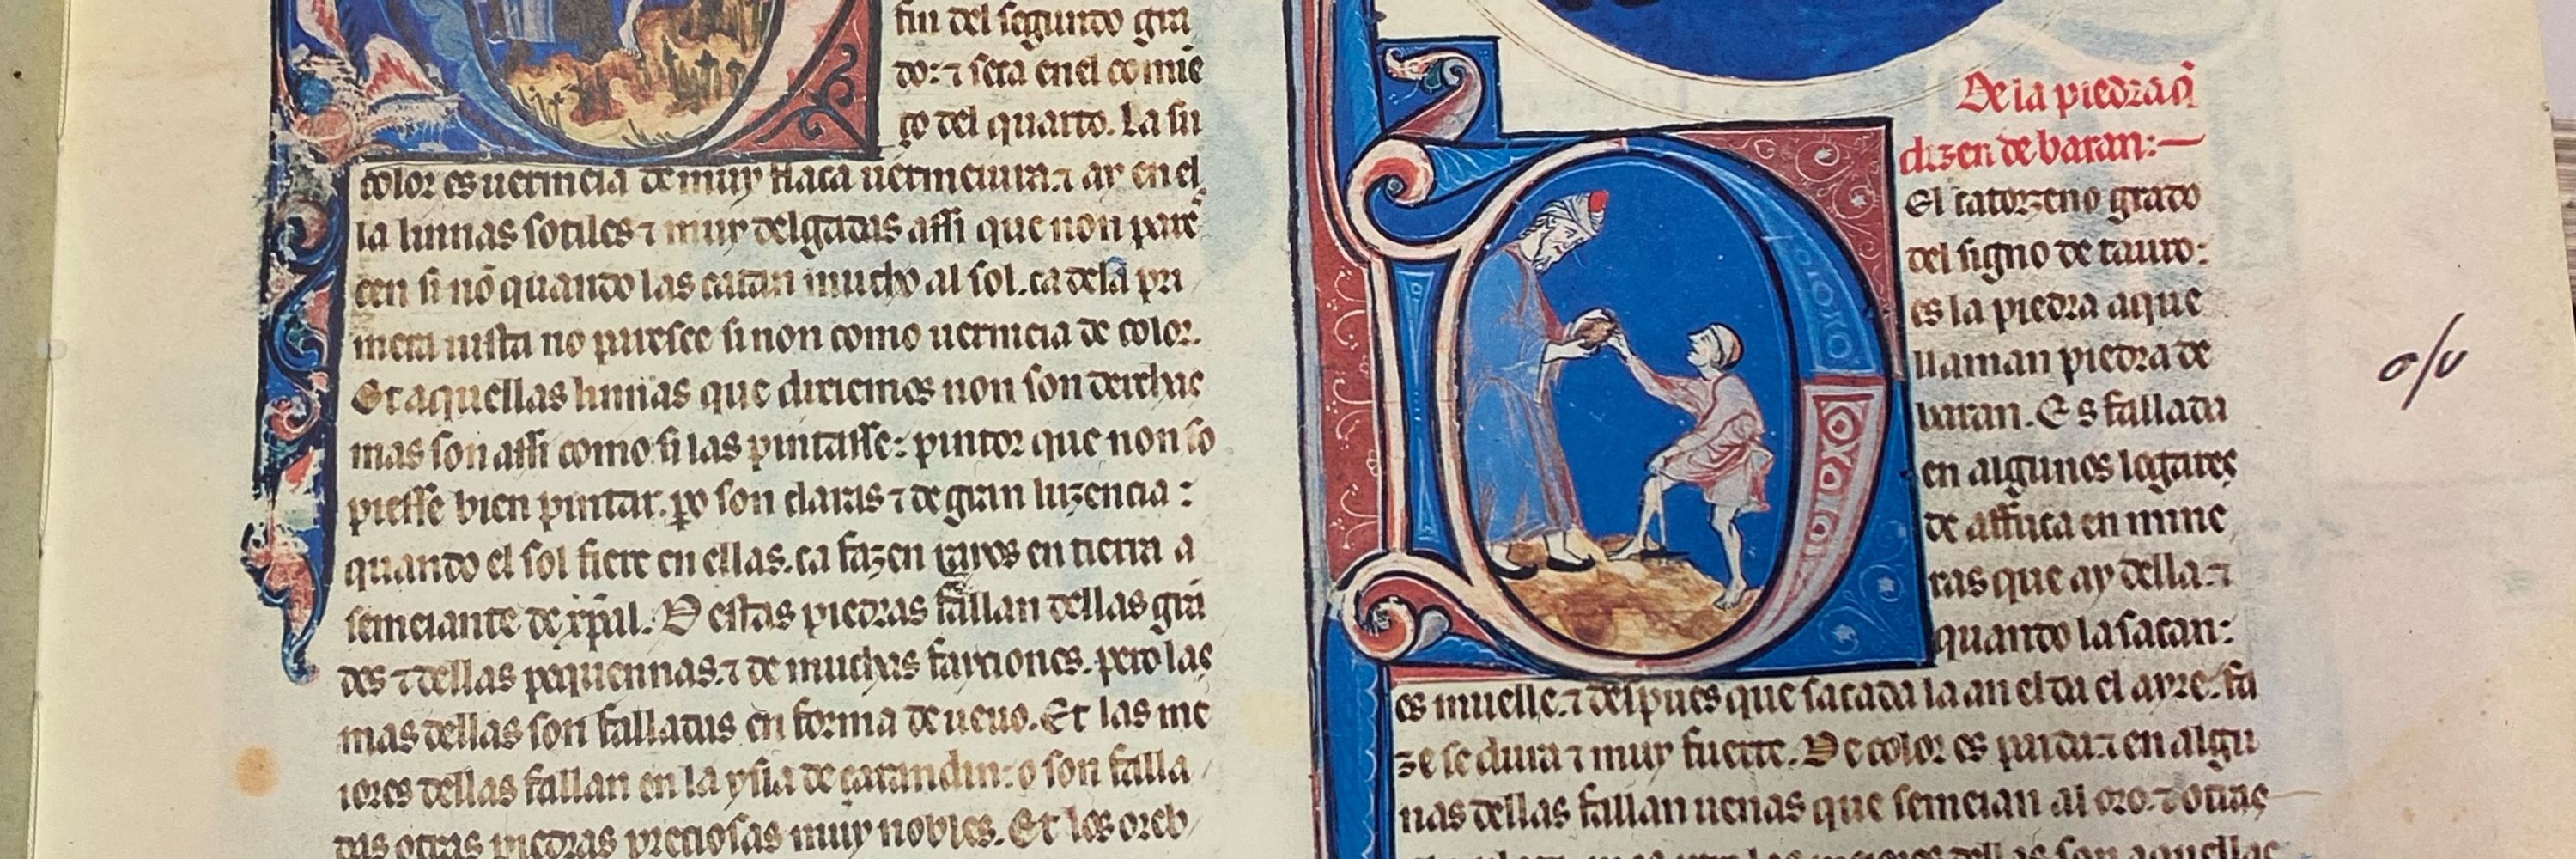 fin del segundo gra
do: ⁊ sera en el comiē
ço del quarto. La su
color es uermeia de muy flaca uermeiura. ⁊ ay en el
la linnas sotiles ⁊ muy delgadas assi que non pare
cen si nō quando las catan mucho al sol. ca de la pri
mera uista no paresce si non como uermeia de color.
Et aquellas linnas que diziemos non son derechas
mas son assi como si las pintasse: pintor que non so
piesse bien pintar. ꝑo son claras ⁊ de gran luzencia:
quando el sol fiere en ellas. ca fazen rayos en tierra a
semeiante de xp̄al. Destas piedras fallan dellas grā
des ⁊ dellas pequennas. ⁊ de muchas fayciones. pero las
mas dellas son falladas en forma de ueuo. Et las me
iores dellas fallan en la ysla de çarandin: o son falla
das otras piedras preciosas muy nobles. Et los oreb
De la piedra q̄
dizen de baran:—
El catorzeno grado
del signo de tauro:
es la piedra aque
llaman piedra de
baran. Es fallada
en algunos logares
de affrica en mine
ras que ay della. ⁊
quando la sacan:
es muelle. ⁊ despues que sacada la an el da el ayre. fa
ze se dura ⁊ muy fuerte. De color es parda. ⁊ en algu
nas dellas fallan uenas que semeian al oro. ⁊ otras
dellas son aquellas
o/u